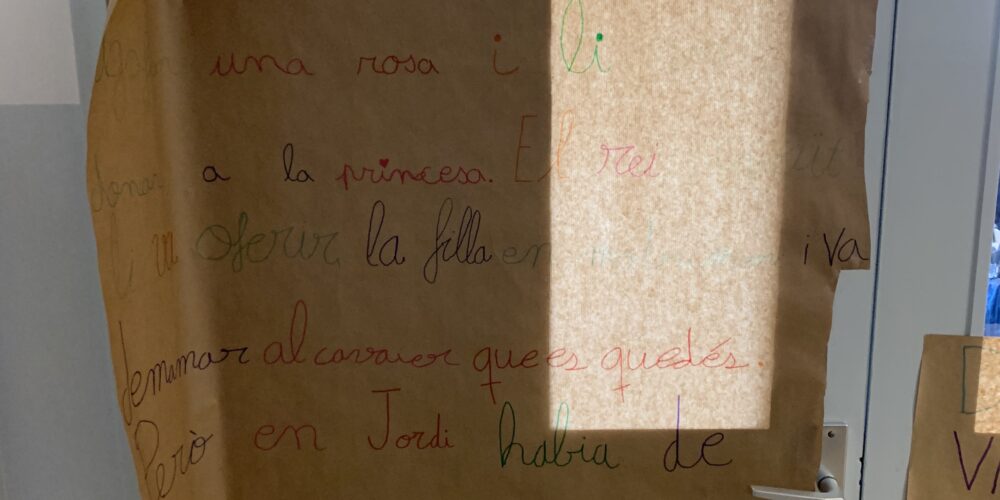 una rosa i li
a la princesa. El rei
oferir la filla en i va
demamar al cavaier que es quedés.
Però en Jordi habia de